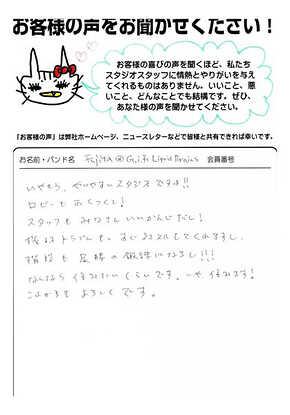 お客様の声をお聞かせください！
お客様の喜びの声を聞くほど、私たち
スタジオスタッフに情熱とやりがいを与え
てくれるものはありません。いいこと、悪
いこと、どんなことでも結構です。ぜひ、
あなた様の声を聞かせてください。
「お客様の声」は弊社ホームページ、ニュースレターなどで皆様と共有できれば幸いです。
お名前・バンド名 Fujita @ 会員番号
いやもう、やりやすいスタジオですよ!!
ロビーも おちつくし!
スタッフも みなさん いいかんじだし!
機材トラブルも、すぐ してくれますし、
階段も 足腰の 鍛錬になるし!!!
なんなら 住みたいくらいです。いや 住みます!
これからも よろしく です。